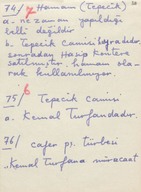 74/7 Hamam (Tepecik)
a. ne zaman yapıldığı
belli değildir
b. Tepecik Camisi
sonradan Hasip
satılmıştır, hamam olarak
kullanılmıyor.
75/6 Tepecik Camisi
a. Kemal Turfandadır.
76/ Cafer pş. türbesi
. Kemal Turfana müracaat